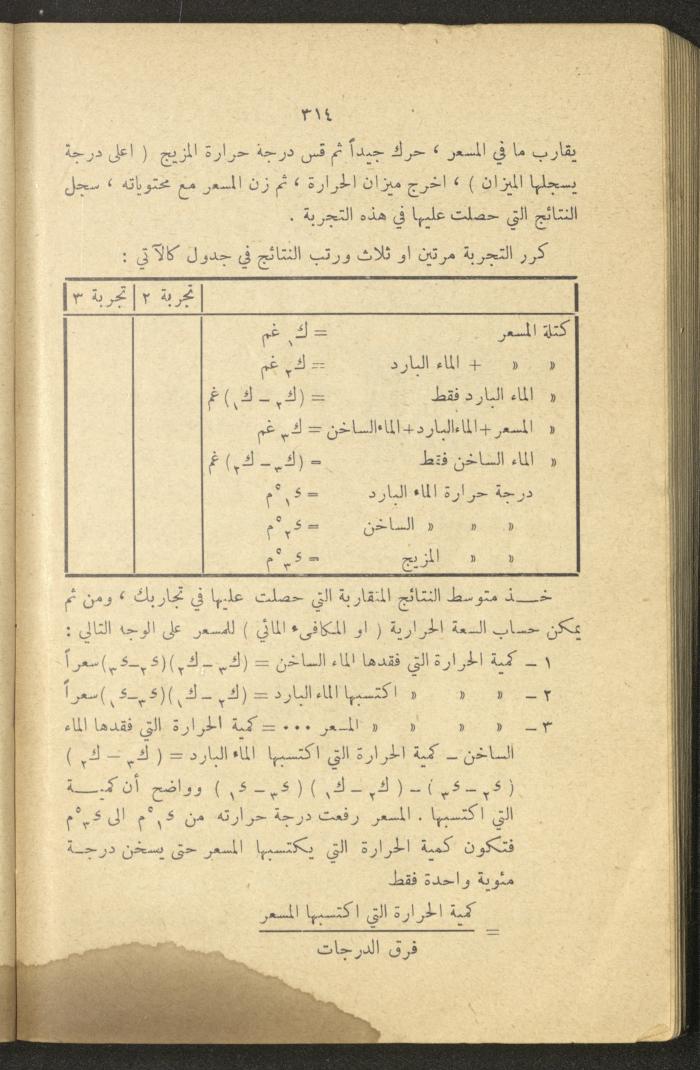 ٣١٤
يقارب ما في المسعر ، حرك جيداً ثم قس درجة حرارة المزيج ( اعلى درجة
يسجلها الميزان ) ، اخرج ميزان الحرارة ، ثم زن المسعر مع محتوياته ، سجل
النتائج التي حصلت عليها في هذه التجربة .
كرر التجربة مرتين او ثلاث ورتب النتائج في جدول كالآتي :
تجربة ٢ | تجربة ٣
كتلة المسعر = ك١ غم
« « + الماء البارد = ك٢ غم
« الماء البارد فقط = (ك٢ – ك١) غم
« المسعر + الماء البارد + الماء الساخن = ك٣ غم
« الماء الساخن فقط = (ك٣ – ك٢) غم
درجة حرارة الماء البارد = د١°م
« « « الساخن = د٢°م
« « المزيج = د٣°م
خـــذ متوسط النتائج المتقاربة التي حصلت عليها في تجاربك ، ومن ثم
يمكن حساب السعة الحرارية ( او المكافىء المائي ) للمسعر على الوجه التالي :
١ – كمية الحرارة التي فقدها الماء الساخن = (ك٣ – ك٢)(د٢–د٣) سعراً
٢ – « « « اكتسبها الماء البارد = (ك٢ – ك١)(د٣–د١) سعراً
٣ – « « « « المسعر ... = كمية الحرارة التي فقدها الماء
الساخن – كمية الحرارة التي اكتسبها الماء البارد = ( ك٣ – ك٢ )
( د٢ – د٣ ) – ( ك٢ – ك١ ) ( د٣ – د١ ) وواضح أن كميـــة
التي اكتسبها . المسعر رفعت درجة حرارته من د١°م الى د٣°م
فتكون كمية الحرارة التي يكتسبها المسعر حتى يسخن درجـة
مئوية واحدة فقط
كمية الحرارة التي اكتسبها المسعر
=
فرق الدرجات